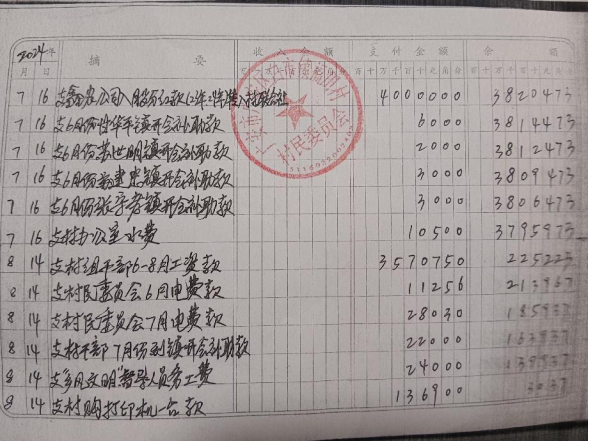 2024年 摘要 收入金额 支付金额 余额
月 日 百十万千百十元角分 百十万千百十元角分 百十万千百十元角分
7 16 支 农公司入股分红款 转入村联合社 4000000 3820473
7 16 支6月份甘华平镇开会补助款 6000 3814473
7 16 支6月份 世明镇开会补助款 2000 3812473
7 16 支6月份杨建忠镇开会补助款 3000 3809473
7 16 支6月份张 镇开会补助款 3000 3806473
7 16 支村办公室水费 10500 3795973
8 14 支村组干部6-8月工资款 3570750 225223
8 14 支村民委员会6月电费款 11256 213967
8 14 支村民委员会7月电费款 28030 185937
8 14 支村干部7月份到镇开会补助款 22000 163937
8 14 支"乡风文明"督导人员务工费 24000 139937
8 14 支村购打印机一台款 136900 3037
村民委员会